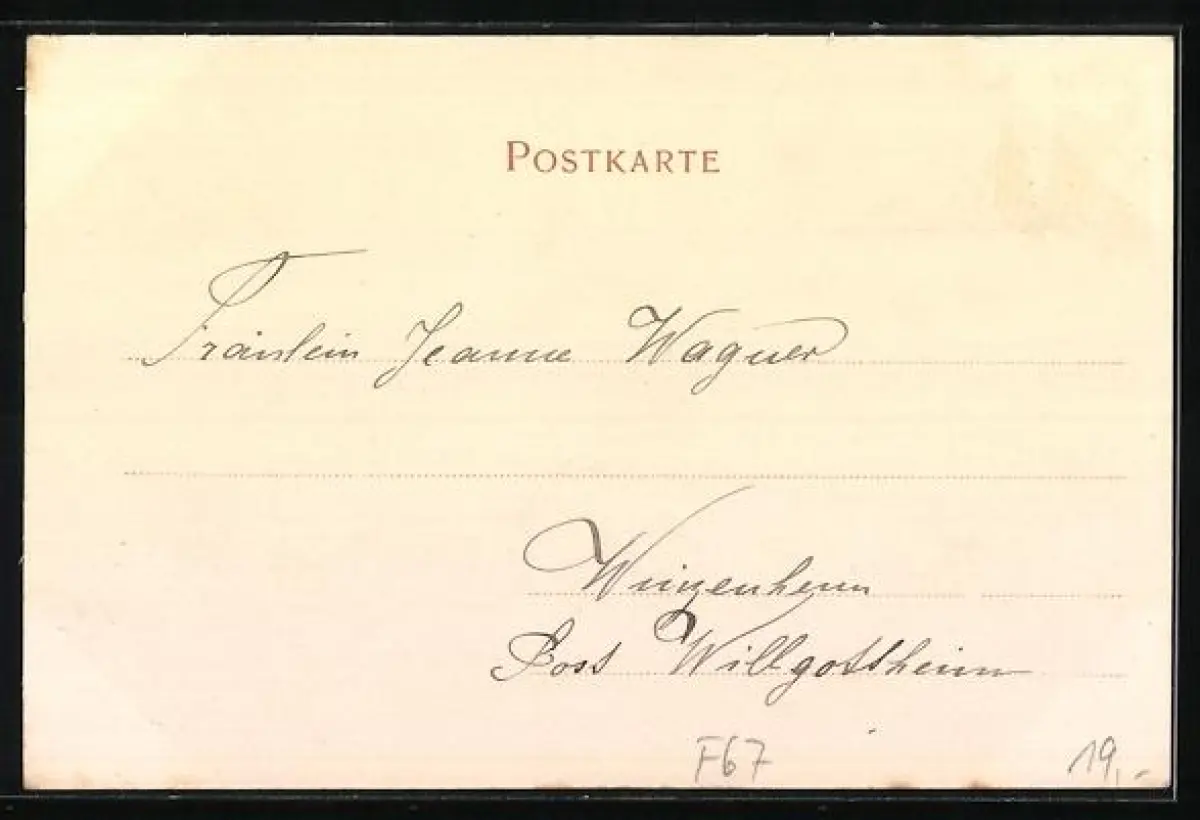 POSTKARTE
Fräulein Jeanne Wagner
Winzenheim
Post Willgottheim
F67
19,-